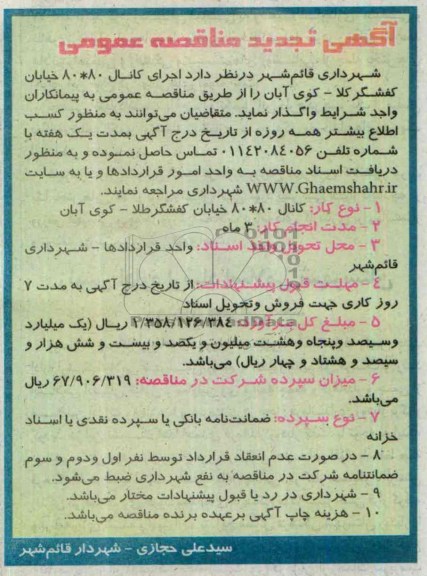 آگهی تجدید مناقصه عمومی
شهرداری قائم‌شهر درنظر دارد اجرای کانال ۸۰*۸۰ خیابان
کفشگرکلا - کوی آبان را از طریق مناقصه عمومی به پیمانکاران
واجد شرایط واگذار نماید. متقاضیان می‌توانند به منظور کسب
اطلاع بیشتر همه روزه از تاریخ درج آگهی بمدت یک هفته با
شماره تلفن ۰۱۱۴۲۰۸۴۰۵۶ تماس حاصل نموده و به منظور
دریافت اسناد مناقصه به واحد امور قراردادها و یا به سایت
WWW.Ghaemshahr.ir شهرداری مراجعه نمایند.
۱- نوع کار: کانال ۸۰*۸۰ خیابان کفشگرطلا - کوی آبان
۲- مدت انجام کار: ۳ ماه
۳- محل تحویل واخذ اسناد: واحد قراردادها - شهرداری
قائم‌شهر
۴- مهلت قبول پیشنهادات: از تاریخ درج آگهی به مدت ۷
روز کاری جهت فروش وتحویل اسناد
۵- مبلغ کل برآورد: ۱/۳۵۸/۱۲۶/۳۸۴ ریال (یک میلیارد
وسیصد وپنجاه وهشت میلیون و یکصد و بیست و شش هزار و
سیصد و هشتاد و چهار ریال) می‌باشد.
۶- میزان سپرده شرکت در مناقصه: ۶۷/۹۰۶/۳۱۹ ریال
می‌باشد.
۷- نوع سپرده: ضمانت‌نامه بانکی یا سپرده نقدی یا اسناد
خزانه
۸- در صورت عدم انعقاد قرارداد توسط نفر اول ودوم و سوم
ضمانتنامه شرکت در مناقصه به نفع شهرداری ضبط می‌شود.
۹- شهرداری در رد یا قبول پیشنهادات مختار می‌باشد.
۱۰- هزینه چاپ آگهی برعهده برنده مناقصه می‌باشد.
سیدعلی حجازی - شهردار قائم‌شهر